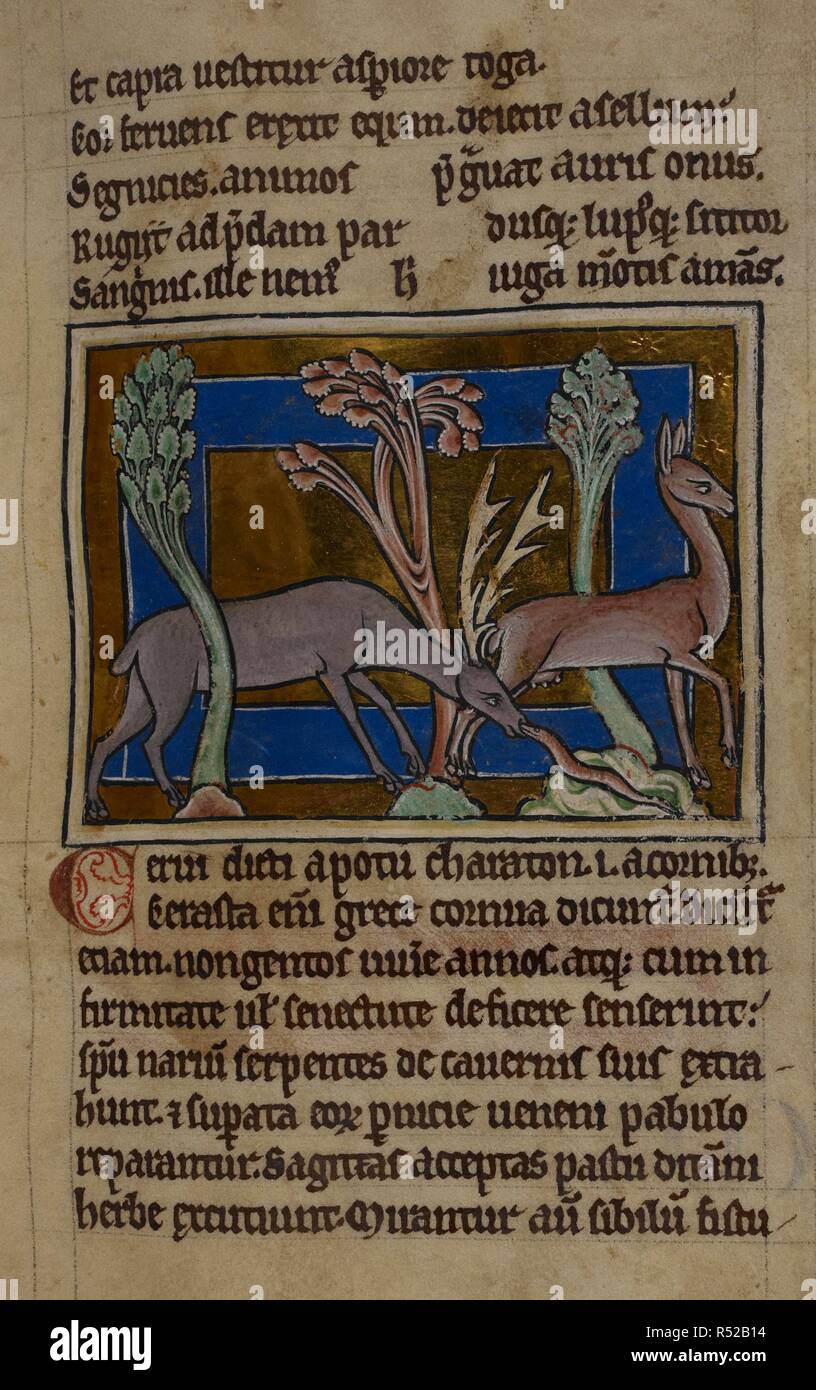 Et capra uestitur asꝑiore toga.
Cor feruens erexit equm. deiecit asellum;
Segnicies. animos p̄grauat auris onus.
Rugijt ad p̄dam par dusq; lupꝰq; sititor
Sanguis. ille nemꝰ h̄ iuga mōtis amās.
Cerui dicti apotu charaton .i. acornibꝫ.
Cerasta em̄ grece cornua dicunt᷑
etiam. nongentos uiuīe annos. atq; cum in
firmitate ul᷑ senectute deficere senserint;
sp̄u nariū serpentes de cauernis suis extra-
hunt. ⁊ suꝑata eoꝝ ꝑnicie ueneni pabulo
reparantur. Sagittas acceptas pastu ditāni
herbe excutiunt. Mirantur aū sibilū fistu
alamy
alamy
Image ID: R52B14
www.alamy.com